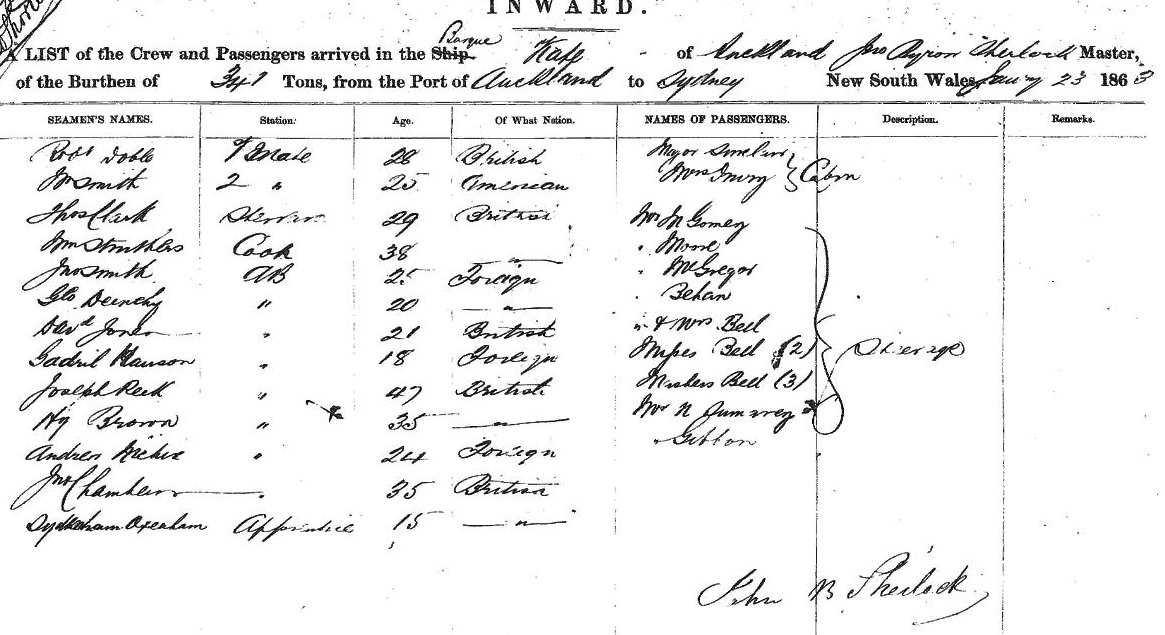 INWARD.
A LIST of the Crew and Passengers arrived in the Ship Barque Kate of Auckland Jno Byron Sherlock Master,
of the Burthen of 341 Tons, from the Port of Auckland to Sydney New South Wales, Jany 23 1863
SEAMEN'S NAMES. Station. Age. Of What Nation. NAMES OF PASSENGERS. Description. Remarks.
Robt Doble 1 Mate 28 British Major
Smith 2 " 25 American Mrs Cabin
Thos Clark 29 British Mr
Wm Struthers Cook 38 " " Moore
Jno Smith AB 25 Foreign " McGregor
Geo " 20 " " Behan
Davd Jones " 21 British " & Mrs Bell
Gadril Hanson " 18 Foreign Misses Bell (2) Steerage
Joseph " 47 British Masters Bell (3)
Hy Brown " 35 " Mr
Andrew " 24 Foreign " Gibbon
Jno Chambers " 35 British
Apprentice 15 "
John B Sherlock